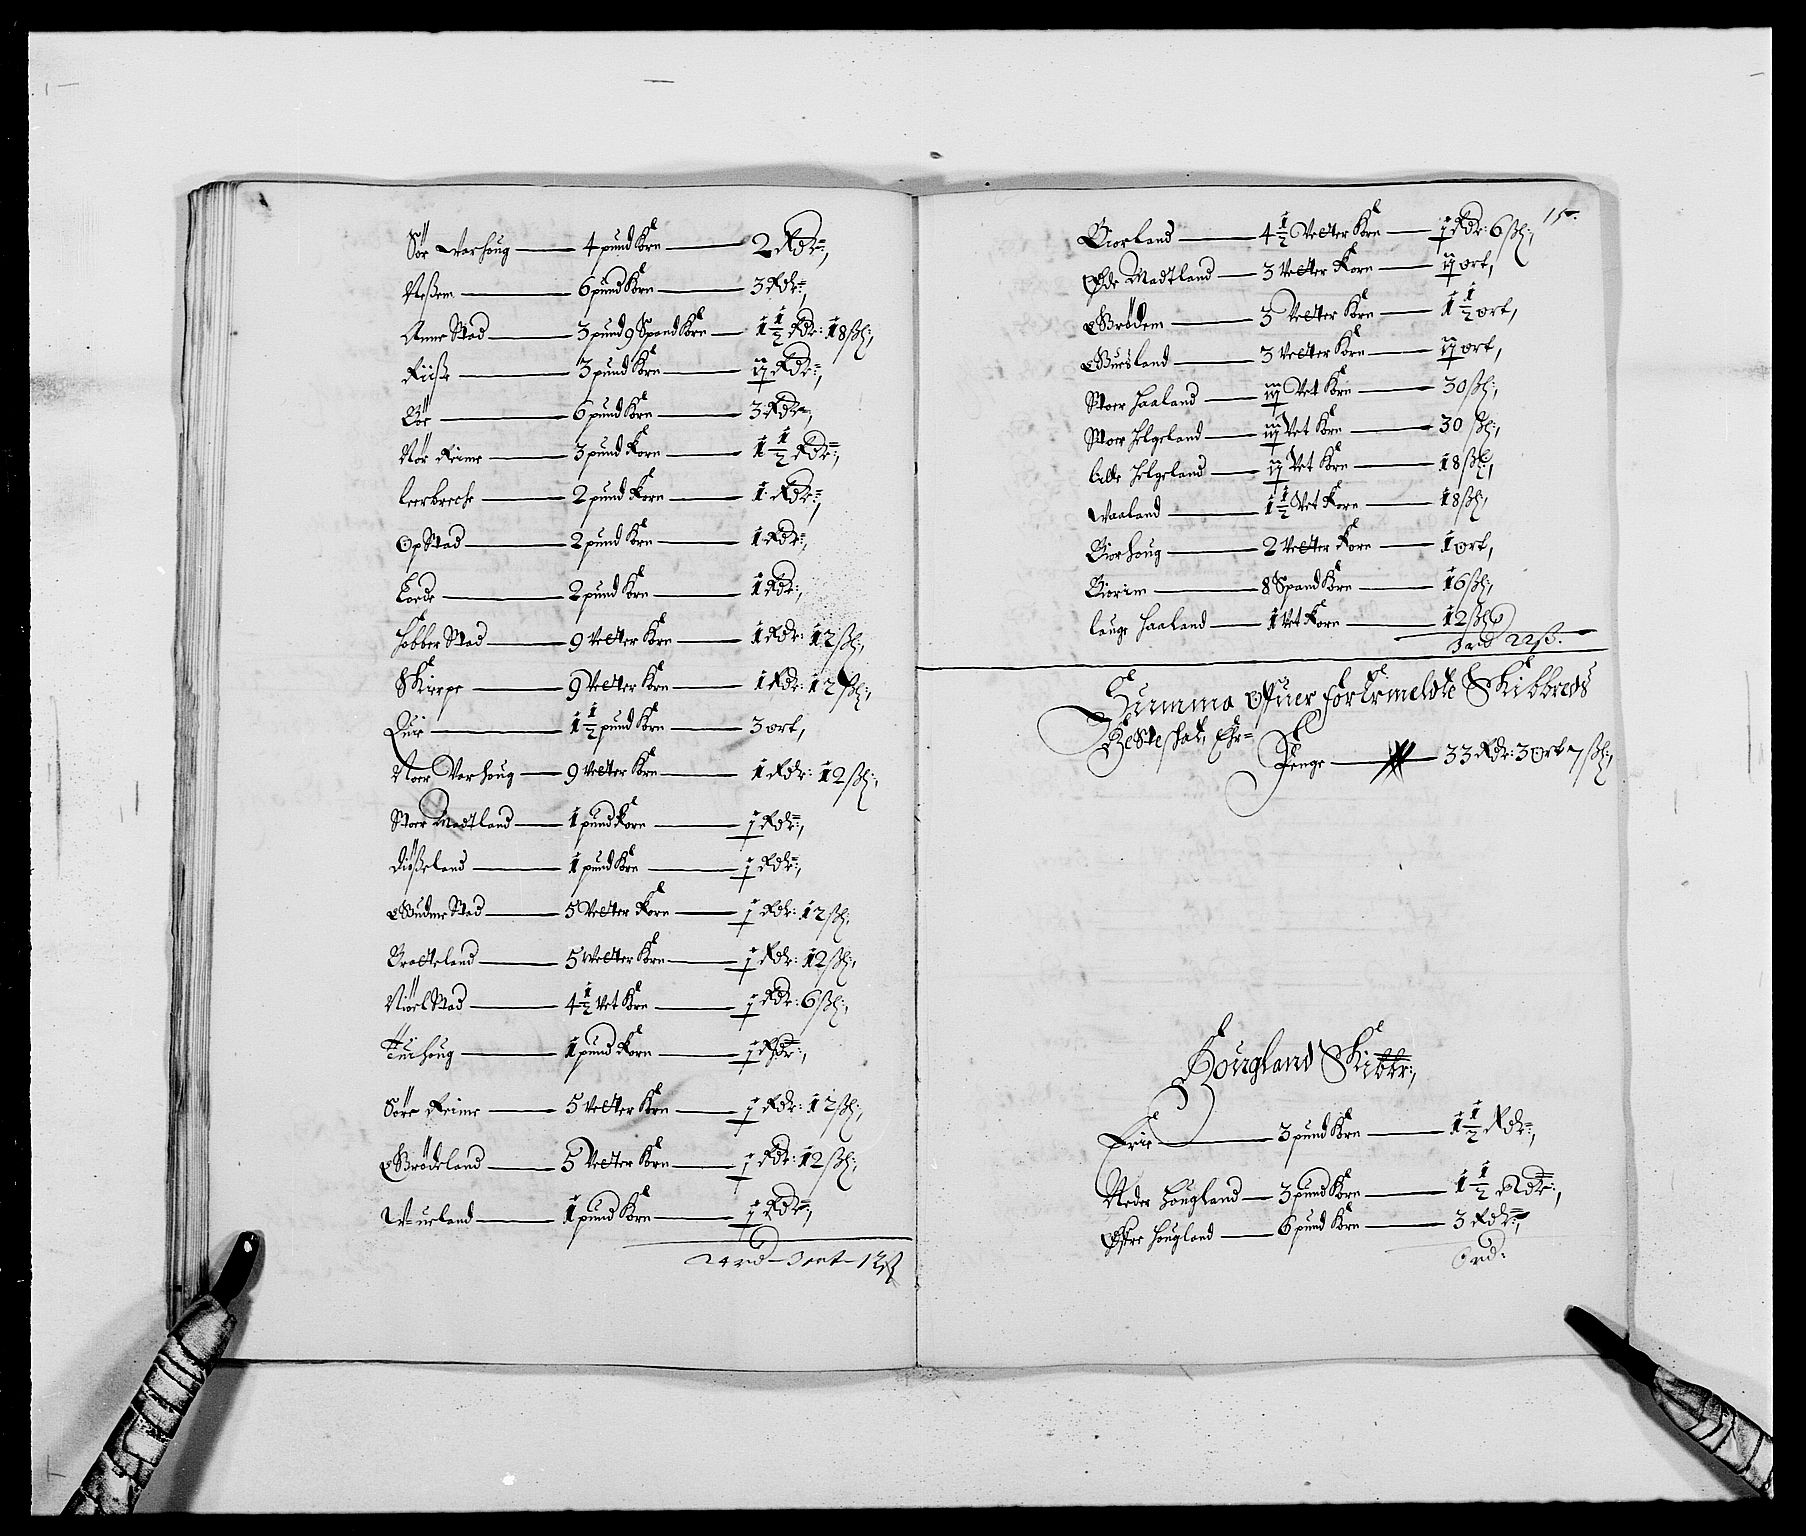 Sör Varhoug — 4 pund Korn — 2 Rdr:,
Neßem — 6 pund Korn — 3 Rdr:,
Anne Stad — 3 pund 9 Spand Korn — 1½ Rdr: 18 ßl:,
Riiße — 3 pund Korn — ij Rdr:,
Böe — 6 pund Korn — 3 Rdr:,
Nör Reime — 3 pund Korn — 1½ Rdr:,
leerbreche — 2 pund Korn — 1 Rdr:,
OpStad — 2 pund Korn — 1 Rdr:,
Lode — 2 pund Korn — 1 Rdr:,
Hobber Stad — 9 Vetter Korn — 1 Rdr: 12 ßl:,
Skierpe — 9 Vetter Korn — 1 Rdr: 12 ßl:,
Quie — 1½ pund Korn — 3 ort,
Noer Varhoug — 9 Vetter Korn — 1 Rdr: 12 ßl:,
Stoer Madtland — 1 pund Korn — j Rdr:,
Diößeland — 1 pund Korn — j Rdr:,
GudmeStad — 5 Vetter Korn — j Rdr: 12 ßl:,
Bratteland — 5 Vetter Korn — j Rdr: 12 ßl:,
NiöelStad — 4½ Vet Korn — j Rdr: 6 ßl:,
Tuihoug — 1 pund Korn — j Rdr:,
Söre Reime — 5 Vetter Korn — j Rdr: 12 ßl:,
Grödeland — 5 Vetter Korn — j Rdr: 12 ßl:,
Wueland — 1 pund Korn — j Rdr:,
24 rd — 3 ort — 13 ß
15.
Biorland — 4½ Vetter Korn — j Rdr: 6 ßl:,
Øde Madtland — 3 Vetter Korn — ij ort,
Grödem — 3 Vetter Korn — 1½ ort,
Gursland — 3 Vetter Korn — ij ort,
Stoer Haaland — iij Vet Korn — 30 ßl:,
Stoer Helgeland — iij Vet Korn — 30 ßl:,
lille Helgeland — ij Vet Korn — 18 ßl:,
Waaland — 1½ Vet Korn — 18 ßl:,
Biorhoug — 2 Vetter Korn — 1 ort,
Biorim — 8 Spand Korn — 16 ßl:,
lauge Haaland — 1 Vet Korn — 12 ßl:
3 rd 22 ß.
Summa Ofuer forermeldte Skibbreds
Penge — 33 Rdr: 3 Ort 7 ßl:,
Hougland Skibbr:,
Erie — 3 pund Korn — 1½ Rdr:,
Neder Hougland — 3 pund Korn — 1½ Rdr:,
Øfre Hougland — 6 pund Korn — 3 Rdr:,
6 rd: